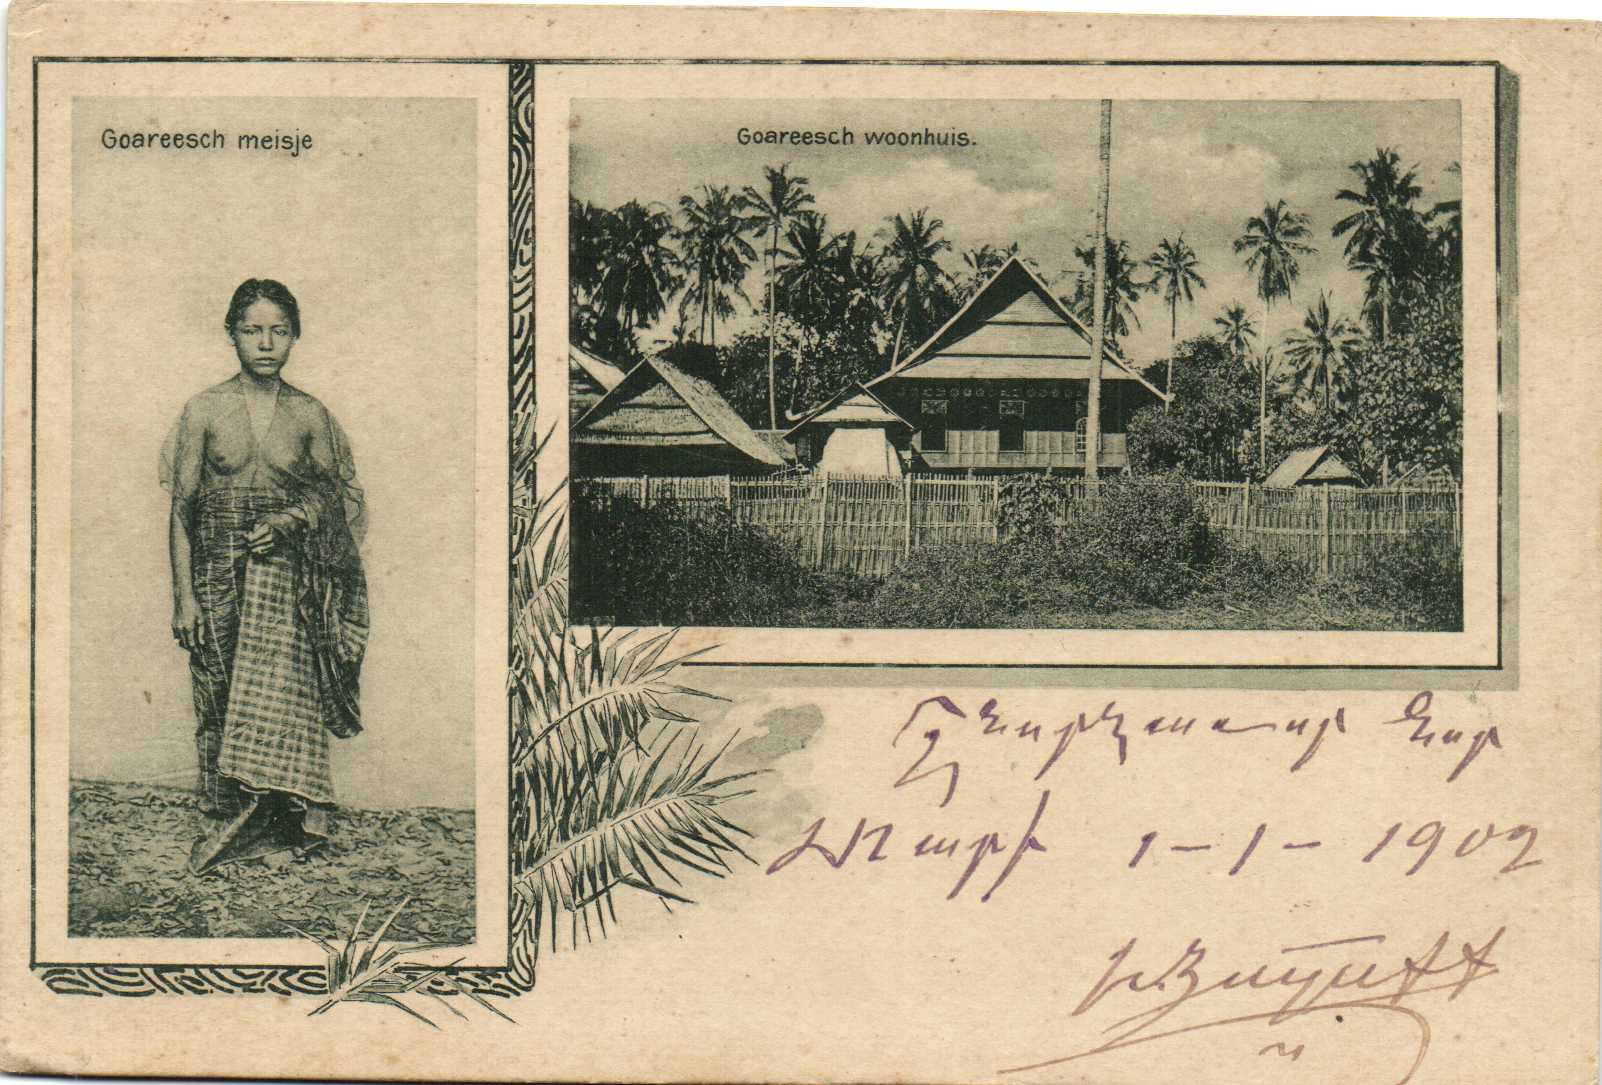 Goareesch meisje
Goareesch woonhuis.
Շնորհաւոր Նոր
Տարի 1-1-1902